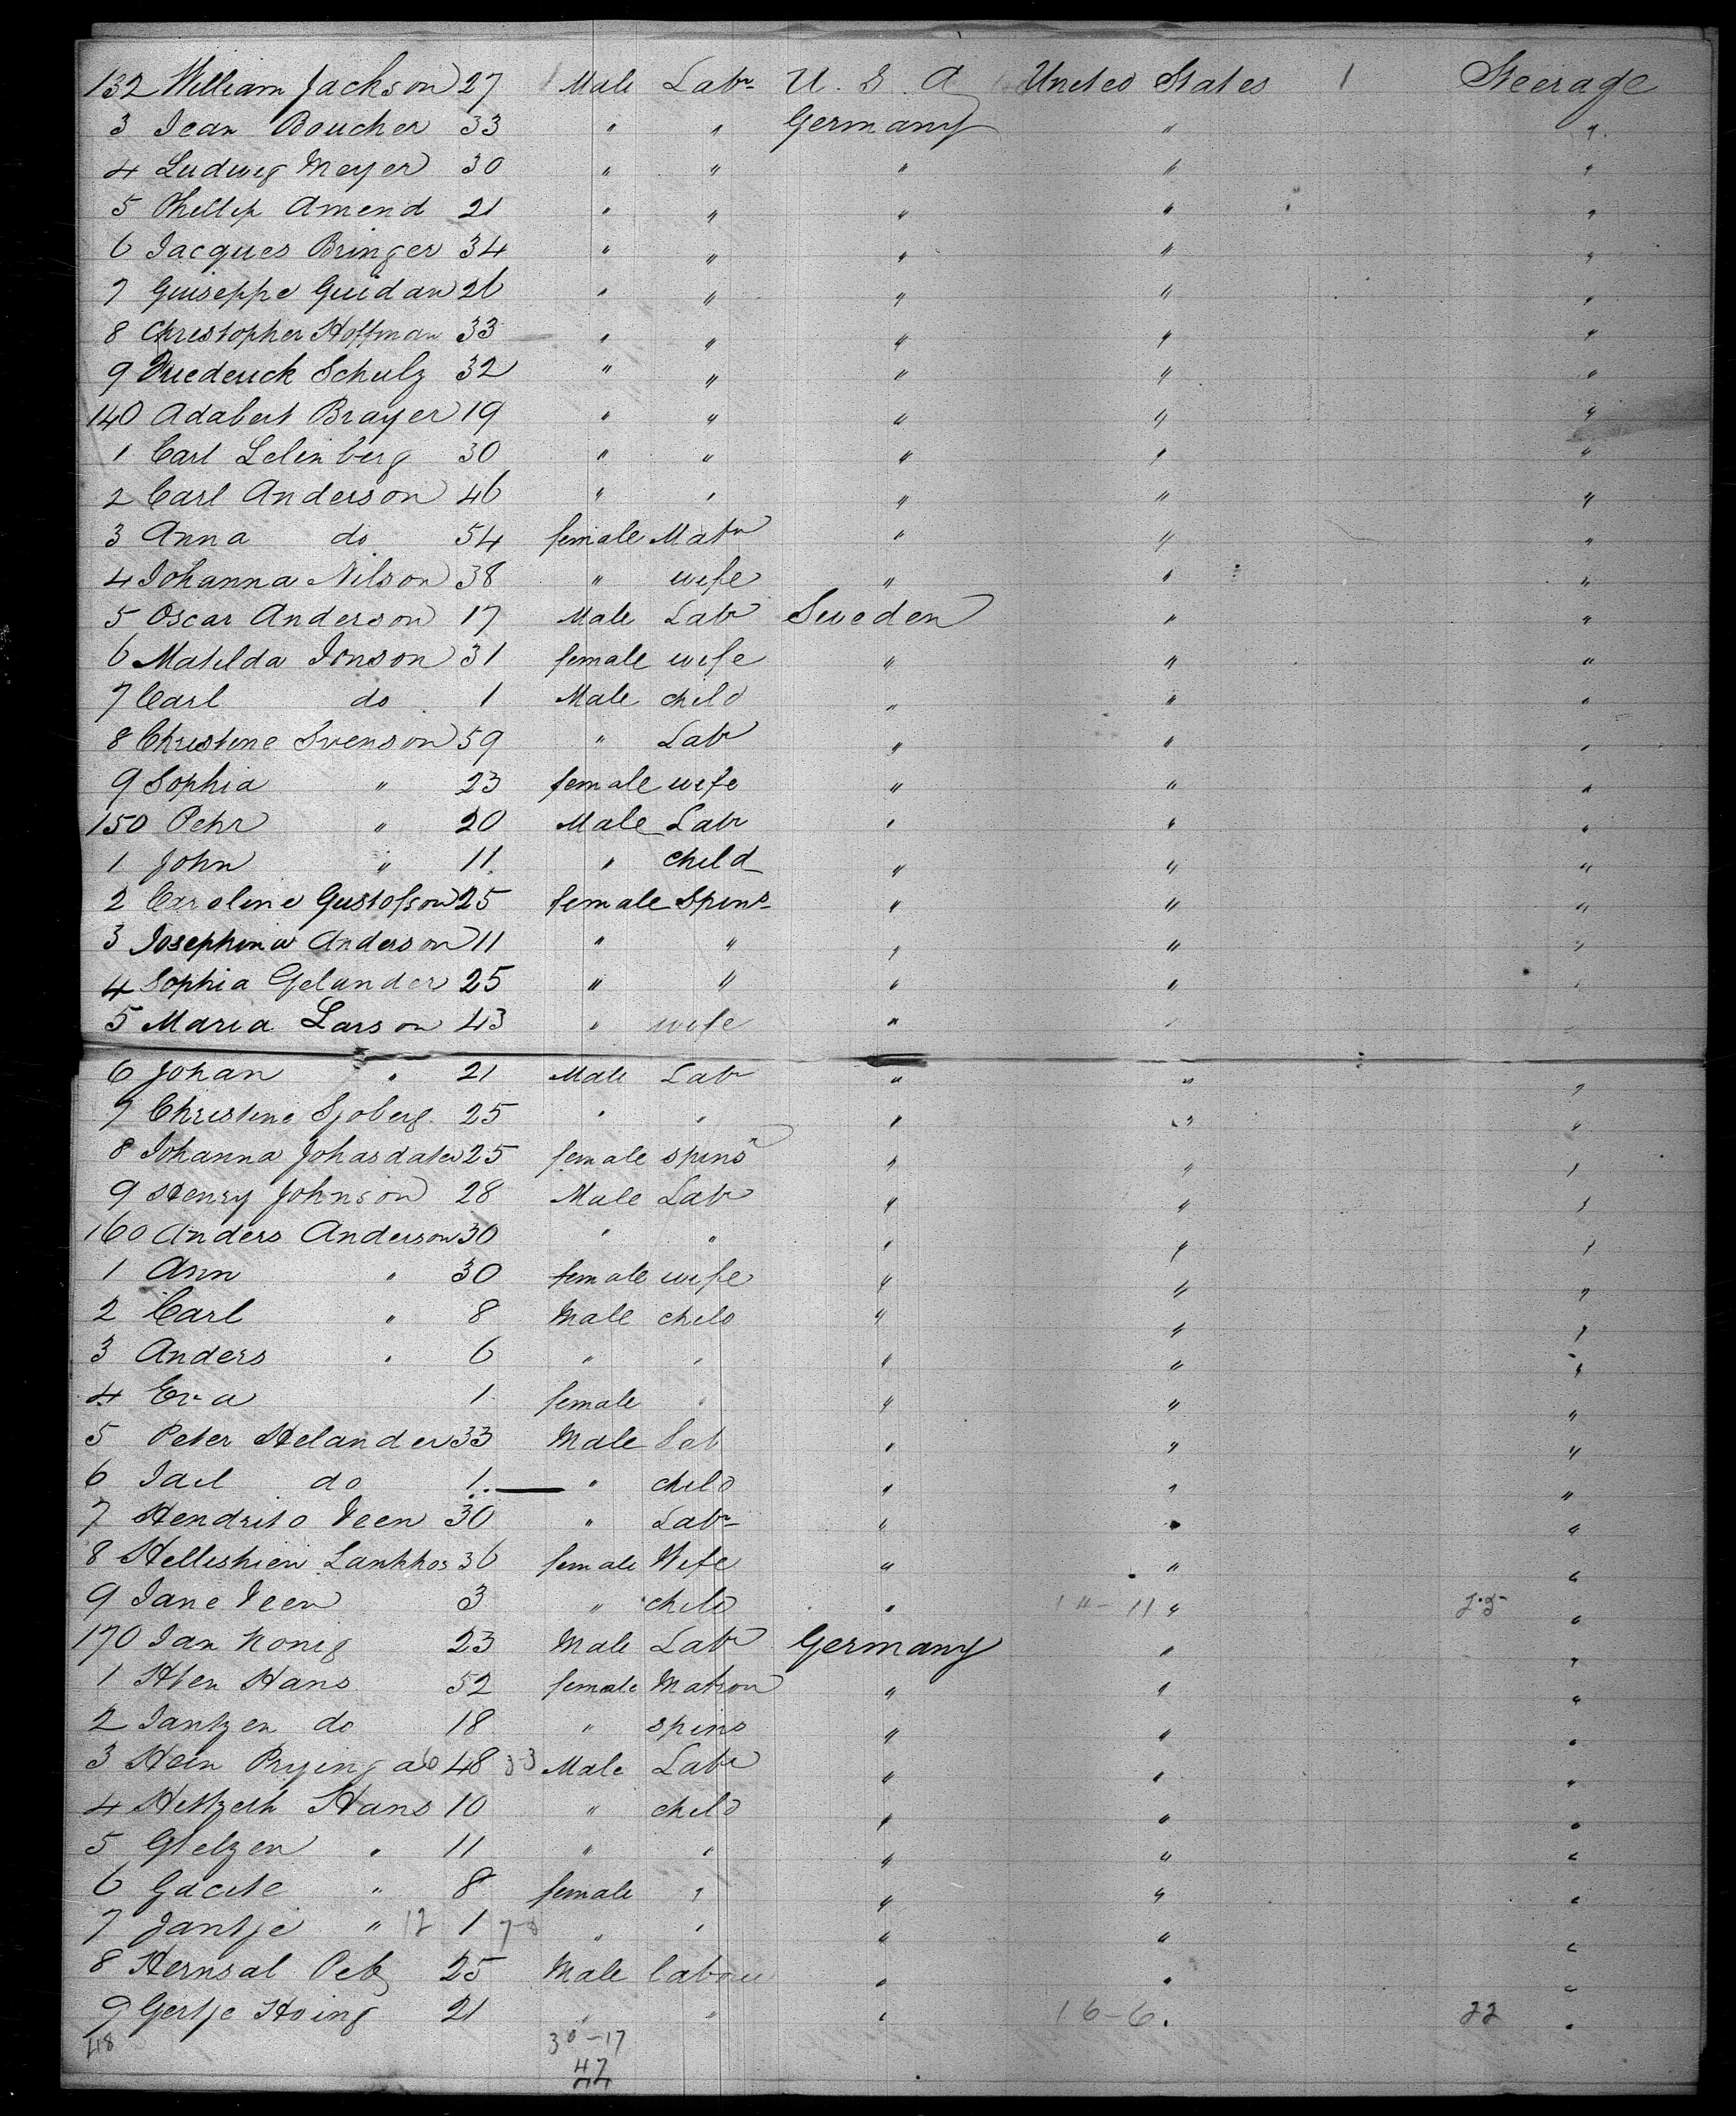 132 William Jackson 27 Male Labr U. S. A United States 1 Steerage
3 Jean Boucher 33 " " Germany " "
4 Ludwig Meyer 30 " " " " "
5 Phillip Amend 21 " " " " "
6 Jacques Bringer 34 " " " " "
7 Guiseppe Guidan 26 " " " " "
8 Christopher Hoffman 33 " " " " "
9 Friederick Schulz 32 " " " " "
140 Adabert Brayer 19 " " " " "
1 Carl Lelinberg 30 " " " " "
2 Carl Anderson 46 " " " " "
3 Anna do 54 female Matn " " "
4 Johanna Nilson 38 " wife " " "
5 Oscar Anderson 17 Male Labr Sweden " "
6 Matilda Jonson 31 female wife " " "
7 Carl do 1 Male child " " "
8 Christine Svenson 59 " Labr " " "
9 Sophia " 23 female wife " " "
150 Pehr " 20 Male Labr " " "
1 John " 11 " child " " "
2 Caroline Gustofson 25 female Spins " " "
3 Josephina Anderson 11 " " " " "
4 Sophia Gelander 25 " " " " "
5 Maria Larson 43 " wife " " "
6 Johan " 21 Male Labr " " "
7 Christine Sjoberg 25 " " " " "
8 Johanna Johasdater 25 female spins " " "
9 Henry Johnson 28 Male Labr " " "
160 Anders Anderson 30 " " " " "
1 Ann " 30 female wife " " "
2 Carl " 8 Male child " " "
3 Anders " 6 " " " " "
4 Eva 1 female " " " "
5 Peter Helander 33 Male Lab " " "
6 do 1 " child " " "
7 Veen 30 " Labr " " "
8 36 female Wife " " "
9 Jane Veen 3 " child " 14-11 " 25 "
170 Jan Konig 23 Male Labr Germany " "
1 Hans 52 female Matron " " "
2 Jantzen do 18 " spins " " "
3 Hein 48 33 Male Labr " " "
4 Hans 10 " child " " "
5 Gielzen " 11 " " " " "
6 " 8 female " " " "
7 Jantje " 12 1 7-8 " " " " "
8 25 Male labour " " "
9 Gertje Hoing 21 " " " 16-6 " 22 "
48 30-17
47